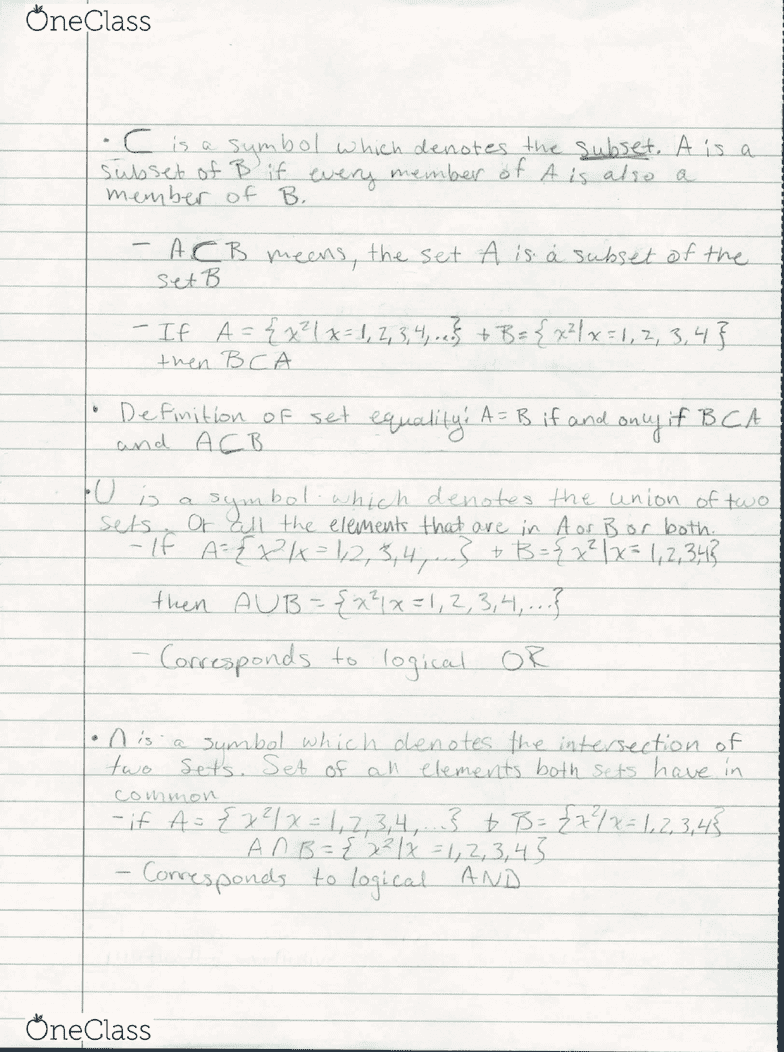 OneClass
• ⊂ is a symbol which denotes the subset. A is a
subset of B if every member of A is also a
member of B.
- A⊂B means, the set A is a subset of the
set B
- If A = {x²|x=1,2,3,4,...} + B={x²|x=1,2,3,4}
then B⊂A
• Definition of set equality: A=B if and only if B⊂A
and A⊂B
• ∪ is a symbol which denotes the union of two
sets. Or all the elements that are in A or B or both.
- If A={x²|x=1,2,3,4,...} + B={x²|x=1,2,3,4}
then A∪B={x²|x=1,2,3,4,...}
- Corresponds to logical OR
• ∩ is a symbol which denotes the intersection of
two sets. Set of all elements both sets have in
common
- if A={x²|x=1,2,3,4,...} + B={x²|x=1,2,3,4}
A∩B={x²|x=1,2,3,4}
- Corresponds to logical AND
OneClass